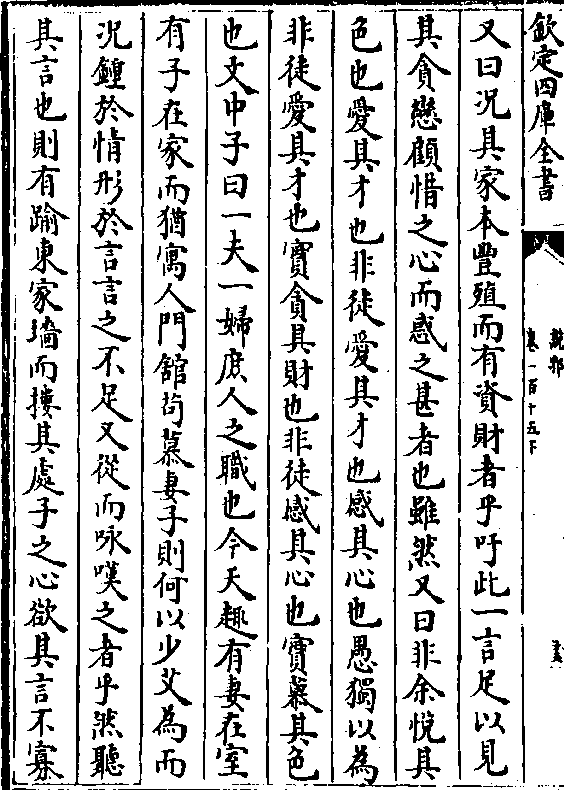 欽定四庫全書
說郛
卷一百十五下
又曰況其家本豐殖而有資財者乎吁此一言足以見
其貪戀顧惜之心而感之甚者也雖然又曰非余悅其
色也愛其才也非徒愛其才也感其心也愚獨以為
非徒愛其才也實貪其財也非徒感其心也實慕其色
也文中子曰一夫一婦庶人之職也今天趣有妻在室
有子在家而猶寓人門館茍慕妻子則何以少艾為而
況鍾於情形於言言之不足又從而咏嘆之者乎然聽
其言也則有踰東家墻而摟其處子之心欲其言不寡